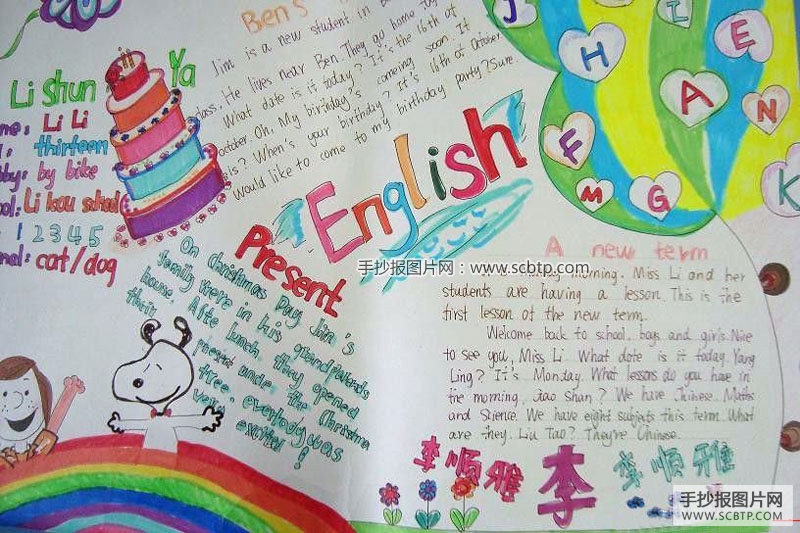 Ben's
Jim is a new student in
class. He lives near Ben. They go home
What date is it today? It's the 16th of
October Oh, My birthday's comeing soon. It
is? When's your birthday? It's 16th of October
Would like to come to my birthday party? Sure.
Li Shun Ya
me: Li Li
thirteen
by: by bike
ool: Li kou school
1 2 3 4 5
mal: cat/dog
English
Present
On christmas Day Jim's
family were in his grandparends
house. Afte lunch they opened
their
presents under the Christma
tree. everybody was
very
excited!
J
H
I
E
A
N
F
M
G
K
A new term
morning. Miss Li and her
students are having a lesson. This is the
first lesson of the new term.
Welcome back to school, boys and girls. Nice
to see you, Miss Li. What date is it today Yang
Ling? It's Monday. What lessons do you have in
the morning, Gao Shan? We have Chinese. Maths
and Science. We have eight subjects this term. What
are they. Liu Tao? They're Chinese.
李顺雅
李
李顺雅
手抄报图片网：www.scbtp.com
手抄报图片网
WWW.SCBTP.COM